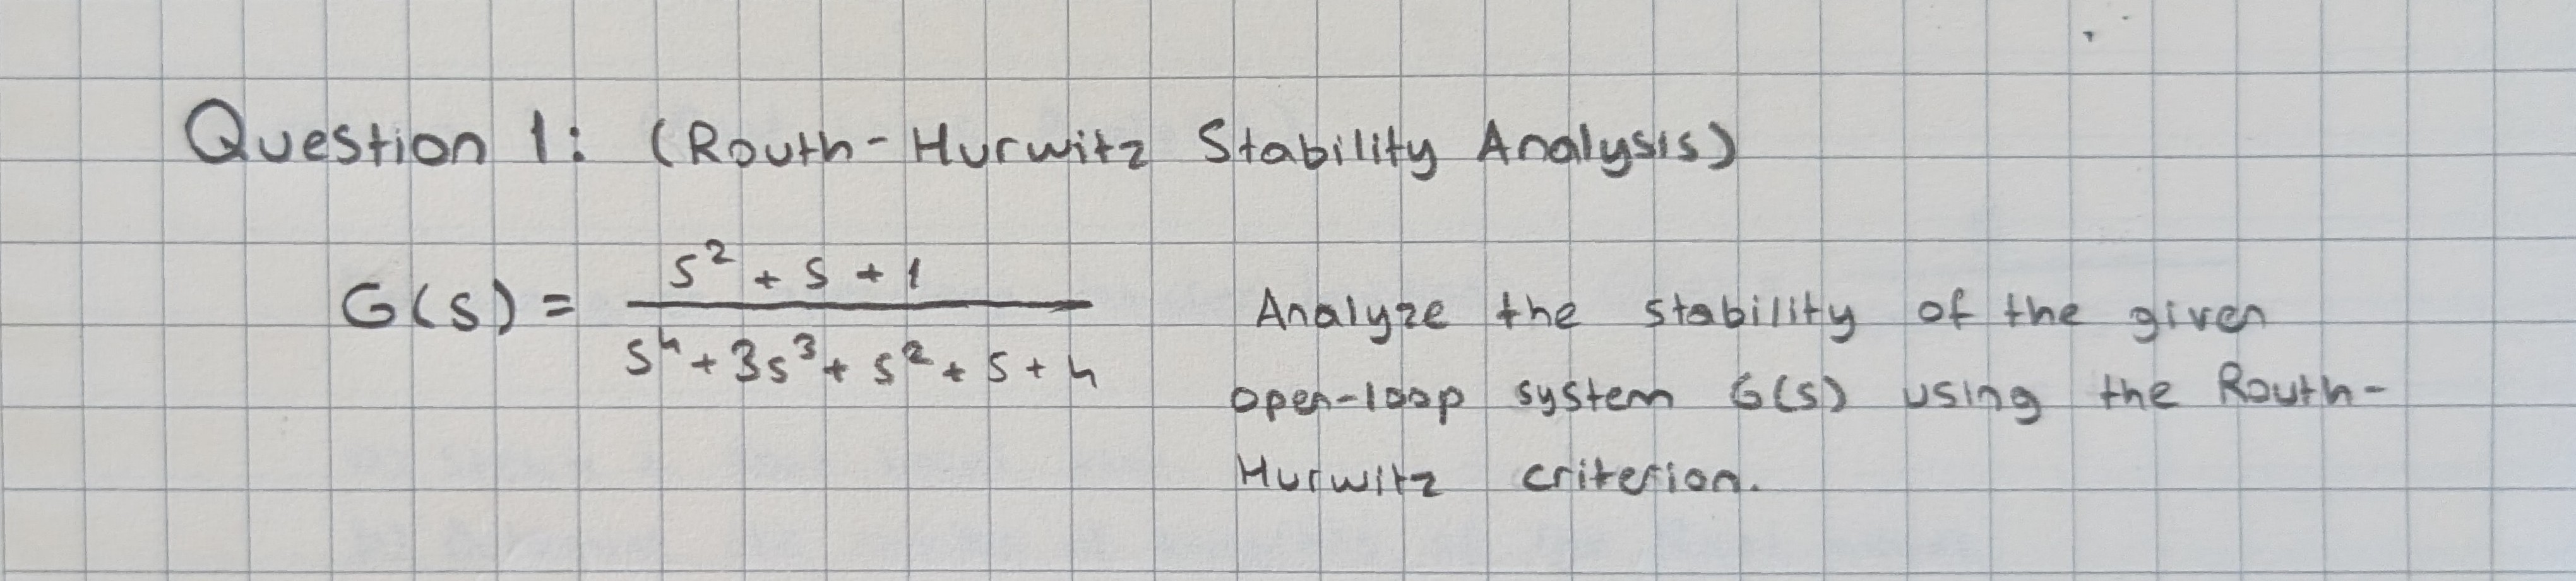 Question 1: (Routh-Hurwitz Stability Analysis)
G(s) = (s² + s + 1) / (s⁴ + 3s³ + s² + s + 4)
Analyze the stability of the given
open-loop system G(s) using the Routh-
Hurwitz criterion.